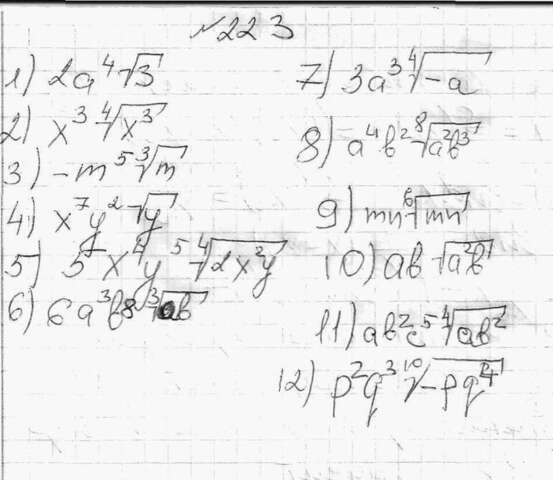 № 223
1) 2a⁴√3
2) x³ ⁴√x³
3) -m⁵ ³√m
4) x⁷y²√y
5) 5x⁴y⁵ ⁴√2x²y
6) 6a³b⁸ ³√ab
7) 3a³ ⁴√-a
8) a⁴b² ⁸√a²b³
9) mn ⁶√mn
10) ab√a²b
11) ab²c⁵ ⁴√ab²
12) p²q³ ¹⁰√-pq⁴